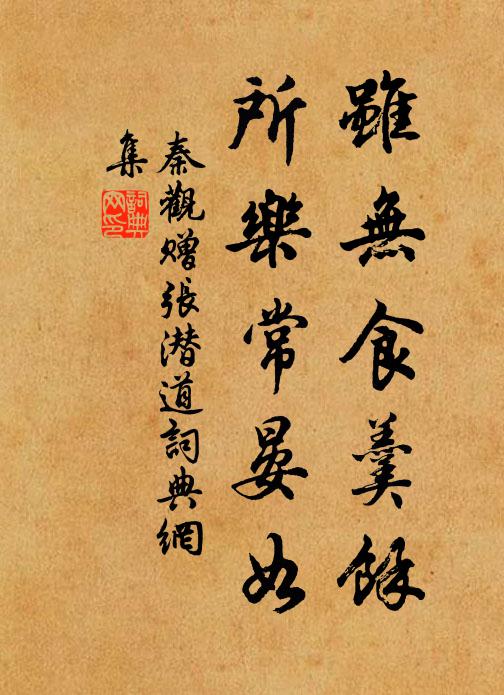 雖無食羹餘
所樂常晏如
秦觀贈張潛道詞典網
集
詞典
网印